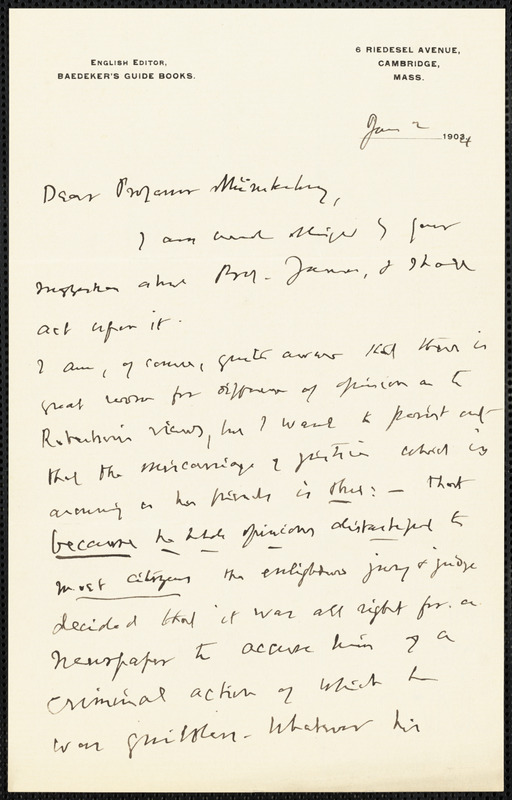 English Editor,
Baedeker's Guide Books.
6 Riedesel Avenue,
Cambridge,
Mass.
Jan 2 1904
Dear Professor Münsterberg,
I am much obliged by your
suggestion about Prof. James, & shall
act upon it.
I am, of course, quite aware that there is
great room for difference of opinion as to
Robertson's views, but I want to point out
that the miscarriage of justice which is
arousing us his friends is this: — that
because he holds opinions distasteful to
most citizens the enlightened jury & judge
decided that it was all right for a
newspaper to accuse him of a
criminal action of which he
was guiltless. Whatever his